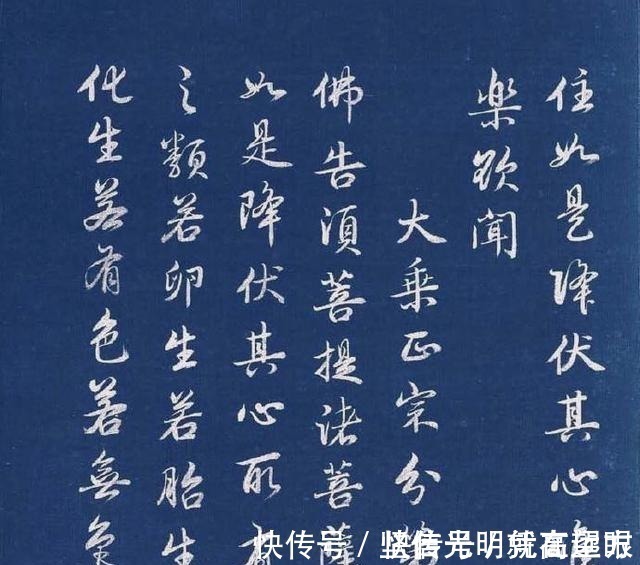 住如是降伏其心
樂欲聞
大乘正宗分第
佛告須菩提諸菩薩
如是降伏其心所有
之類若卵生若胎生
化生若有色若無色
快传号／